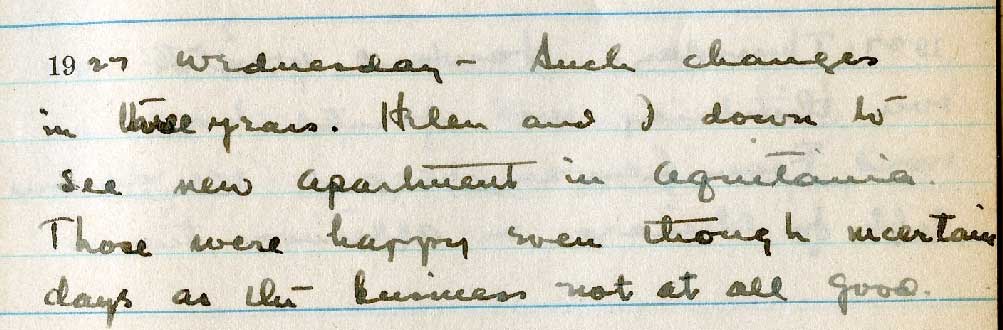 1927 Wednesday - Such changes
in three years. Helen and I down to
see new apartment in Aquitania.
Those were happy even though uncertain
days as the business not at all good.